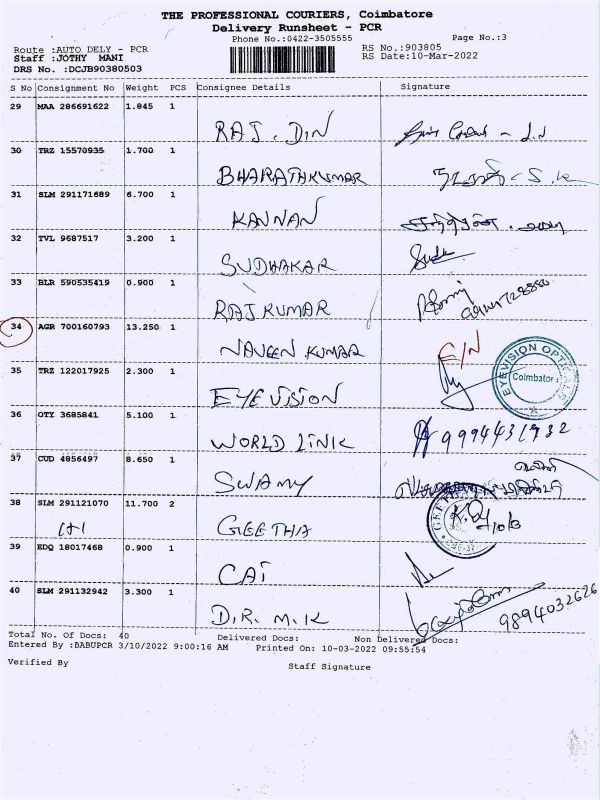 THE PROFESSIONAL COURIERS, Coimbatore
Delivery Runsheet - PCR
Phone No.:0422-3505555 Page No.:3
Route :AUTO DELY - PCR RS No.:903805
Staff :JOTHY MANI RS Date:10-Mar-2022
DRS No. :DCJB90380503
S No Consignment No Weight PCS Consignee Details Signature
29 MAA 286691622 1.845 1
RAJ. DIN
30 TRZ 15570935 1.700 1
BHARATHKUMAR
31 SLM 291171689 6.700 1
KANNAN
32 TVL 9687517 3.200 1
SUDHAKAR
33 BLR 590535419 0.900 1
RAJKUMAR
34 AGR 700160793 13.250 1
NAVEEN KUMAR E/N
35 TRZ 122017925 2.300 1
EYEVISION OPTI
Coimbator
EYE VISION
36 OTY 3685841 5.100 1
WORLD LINK 9994431932
37 CUD 4856497 8.650 1
SWAMY
38 SLM 291121070 11.700 2
1+1 GEETHA
39 EDQ 18017468 0.900 1
CAI
40 SLM 291132942 3.300 1
D.R. M.K 9894032626
Total No. Of Docs: 40 Delivered Docs: Non Delivered Docs:
Entered By :BABUPCR 3/10/2022 9:00:16 AM Printed On: 10-03-2022 09:55:54
Verified By Staff Signature